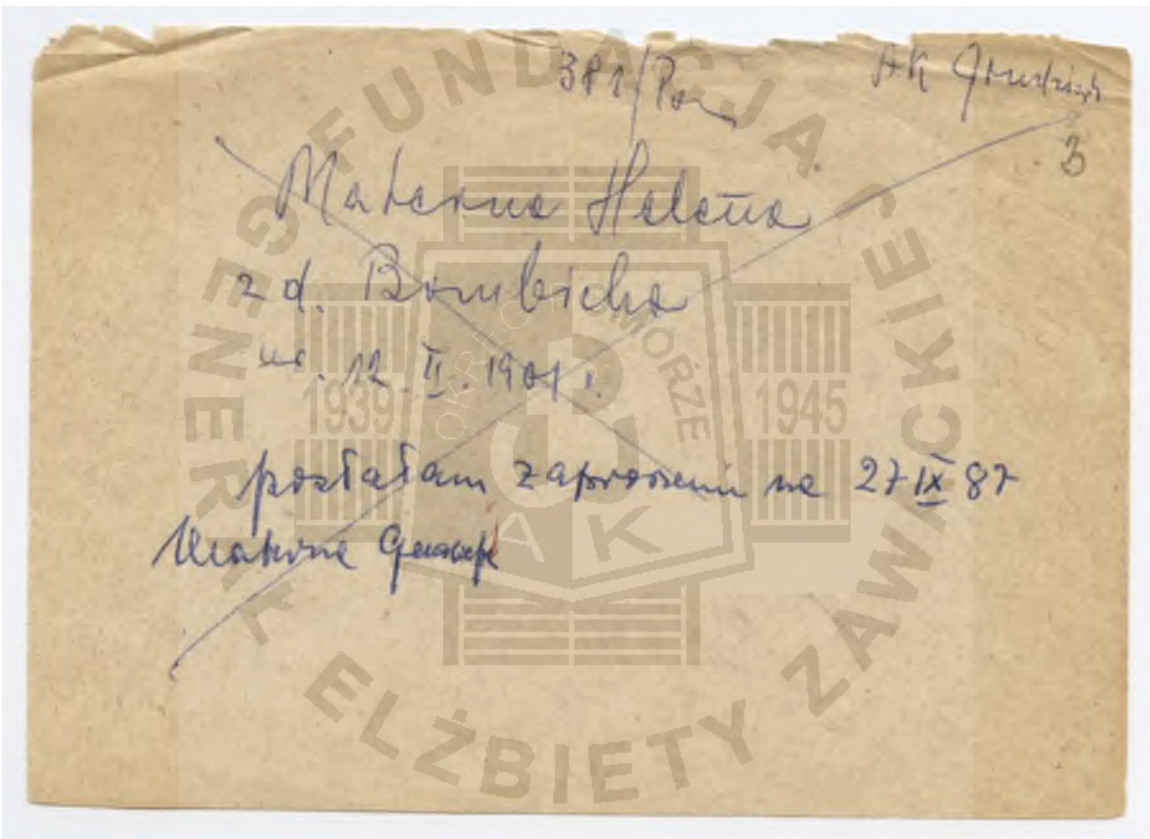 381/Pom AK Grudziądz
3
Materna Helena
z d. Bombicka
ur. 12 II. 1901 r.
posłałam zaproszenie na 27 IX 87
FUNDACJA
GENERAŁ ELŻBIETY ZAWACKIEJ
1939 1945
POMORZE
AK